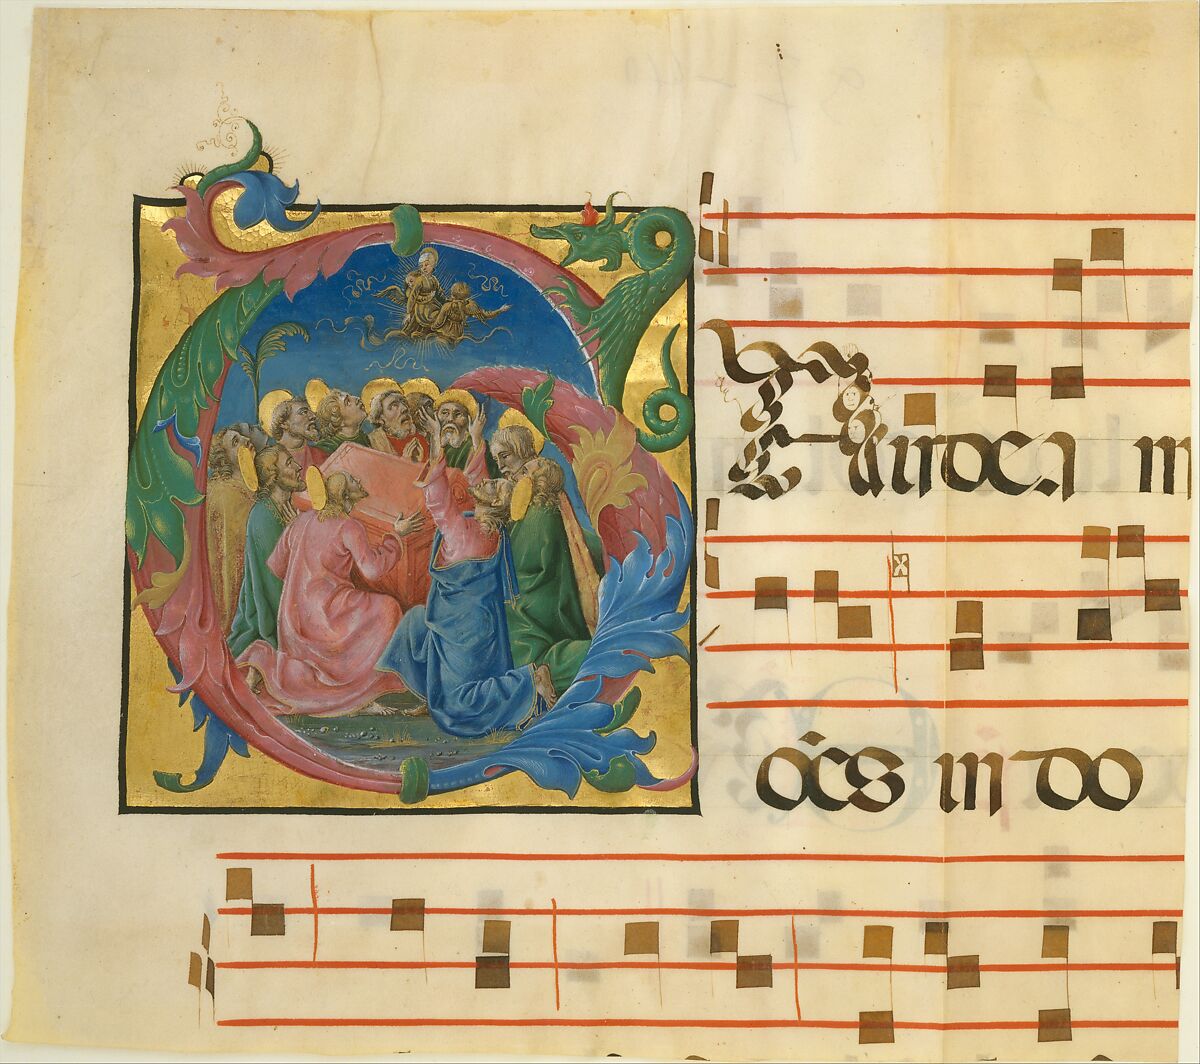 GAudea m
oēs in do